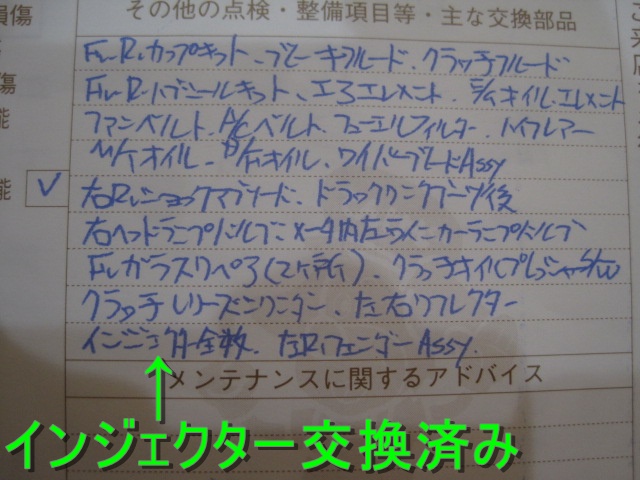 損傷
その他の点検・整備項目等・主な交換部品
Fr Rrカップキット、ブレーキフルード、クラッチフルード
傷
Fr Rrハブシールキット、エアエレメント、E/Gオイル、エレメント
能
ファンベルト、A/Cベルト、フューエルフィルター、
M/Tオイル、D/Fオイル、ワイパーブレードAssy
能
右Rrショックアブソーバー、
右ヘッドランプバルブ、メータ内左ウインカーランプバルブ
Frガラスリペア(2ヶ所)、クラッチオイルプレッシャーS/W
クラッチレリーズシリンダー、左右リフレクター
インジェクター全数、左Rrフェンダー Assy.
メンテナンスに関するアドバイス
インジェクター交換済み